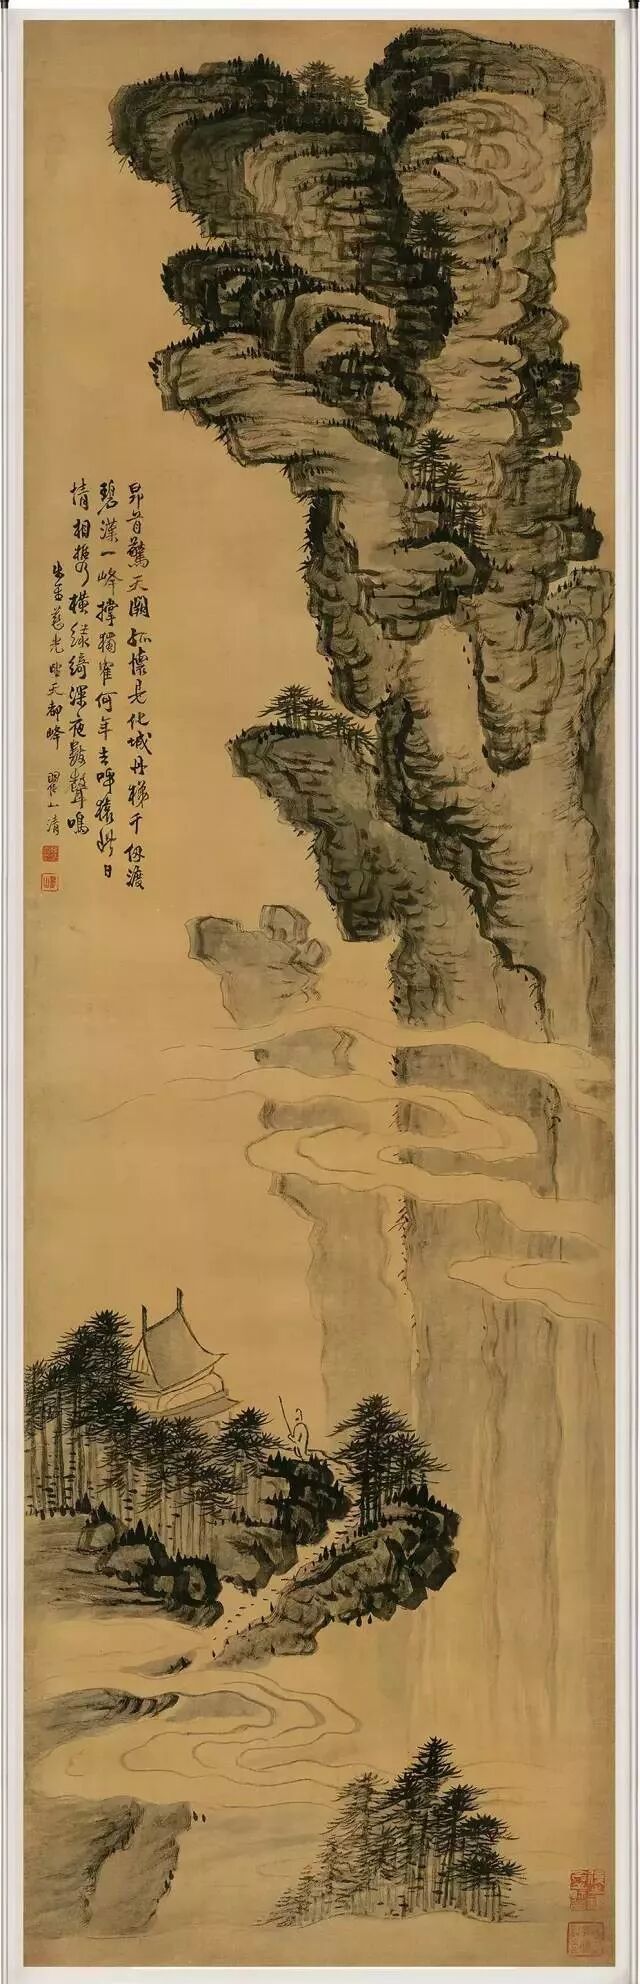 昂首驚天闕孤懷見化城丹梯千仞渡
碧漢一峰撑獨隺何年去呼猿此日
情相攜橫綠綺深夜鼓聲鳴
慈光望天都峰 瞿山清